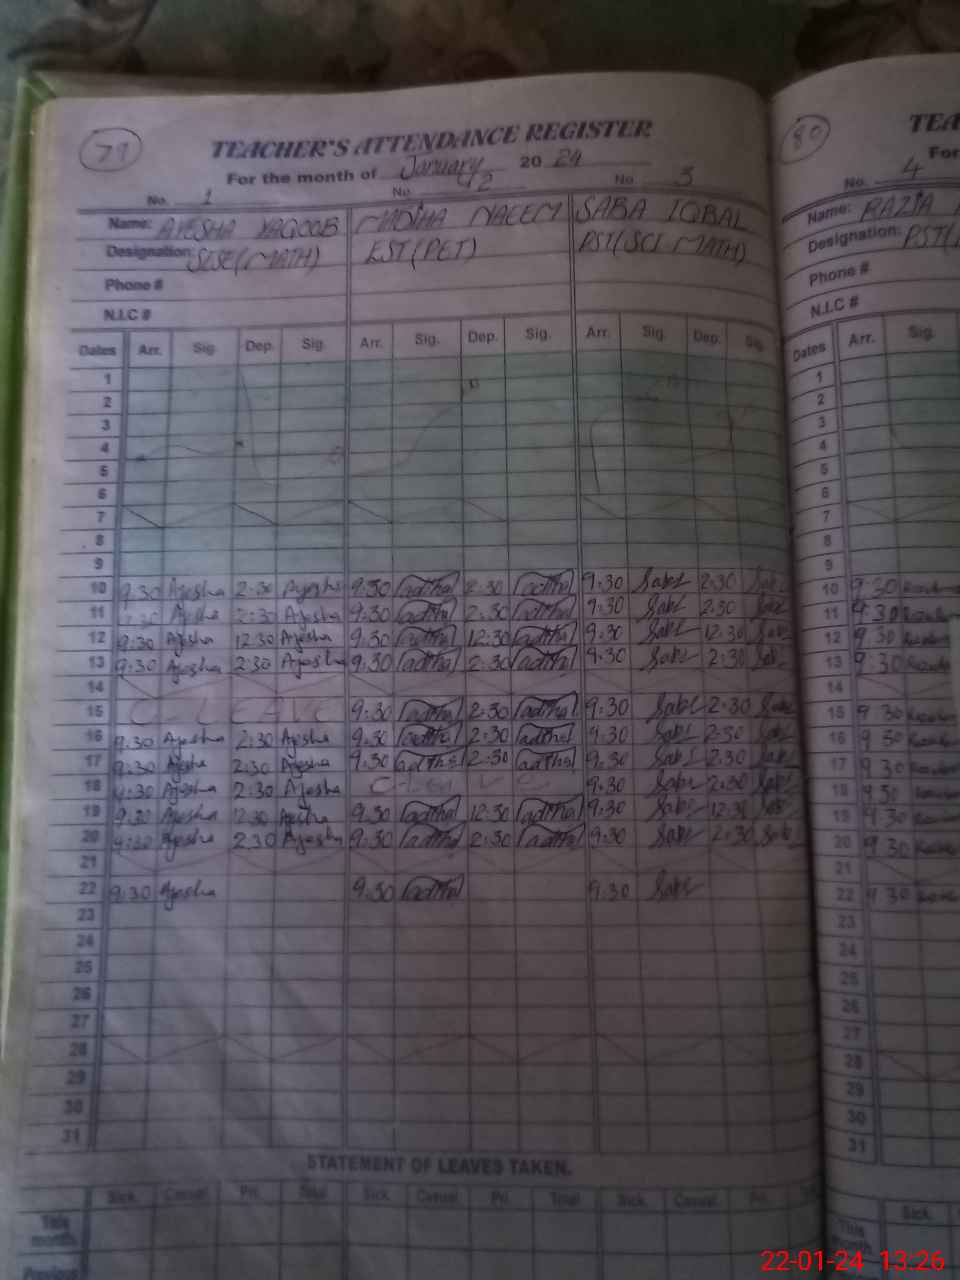 79
TEACHER'S ATTENDANCE REGISTER
For the month of January 2024
No. 1 No. 2 No. 3
Name: AYESHA YAQOOB MADIHA NAEEM SABA IQBAL
Designation: SSE(MATH) EST(PET) PST(SCI MATH)
Phone #
N.I.C #
Dates Arr. Sig. Dep. Sig. Arr. Sig. Dep. Sig. Arr. Sig. Dep. Sig.
1
2
3
4
5
6
7
8
9
10 9:30 Ayesha 2:30 Ayesha 9:30 2:30 9:30 Saba 2:30 Saba
11 9:30 Ayesha 2:30 Ayesha 9:30 2:30 9:30 Saba 2:30 Saba
12 9:30 Ayesha 12:30 Ayesha 9:30 12:30 9:30 Saba 12:30 Saba
13 9:30 Ayesha 2:30 Ayesha 9:30 2:30 9:30 Saba 2:30 Saba
14
15 C-LEAVE 9:30 2:30 9:30 Saba 2:30 Saba
16 9:30 Ayesha 2:30 Ayesha 9:30 2:30 9:30 Saba 2:30 Saba
17 9:30 Ayesha 2:30 Ayesha 9:30 2:30 9:30 Saba 2:30 Saba
18 9:30 Ayesha 2:30 Ayesha 9:30 Saba 2:30 Saba
19 9:30 Ayesha 12:30 Ayesha 9:30 12:30 9:30 Saba 12:30 Saba
20 9:30 Ayesha 2:30 Ayesha 9:30 2:30 9:30 Saba 2:30 Saba
21
22 9:30 Ayesha 9:30 9:30 Saba
23
24
25
26
27
28
29
30
31
STATEMENT OF LEAVES TAKEN.
Sick. Casual. Pri. Total Sick. Casual. Pri. Total Sick. Casual. Pri.
This month.
Previous
80
No. 4
Name: RAZIA
Designation: PST(
Phone #
N.I.C #
Dates Arr. Sig.
1
2
3
4
5
6
7
8
9
10 9:30
11 9:30
12 9:30
13 9:30
14
15 9:30
16 9:30
17 9:30
18 9:30
19 9:30
20 9:30
21
22 9:30
23
24
25
26
27
28
29
30
31
Sick.
This month.
22-01-24 13:26